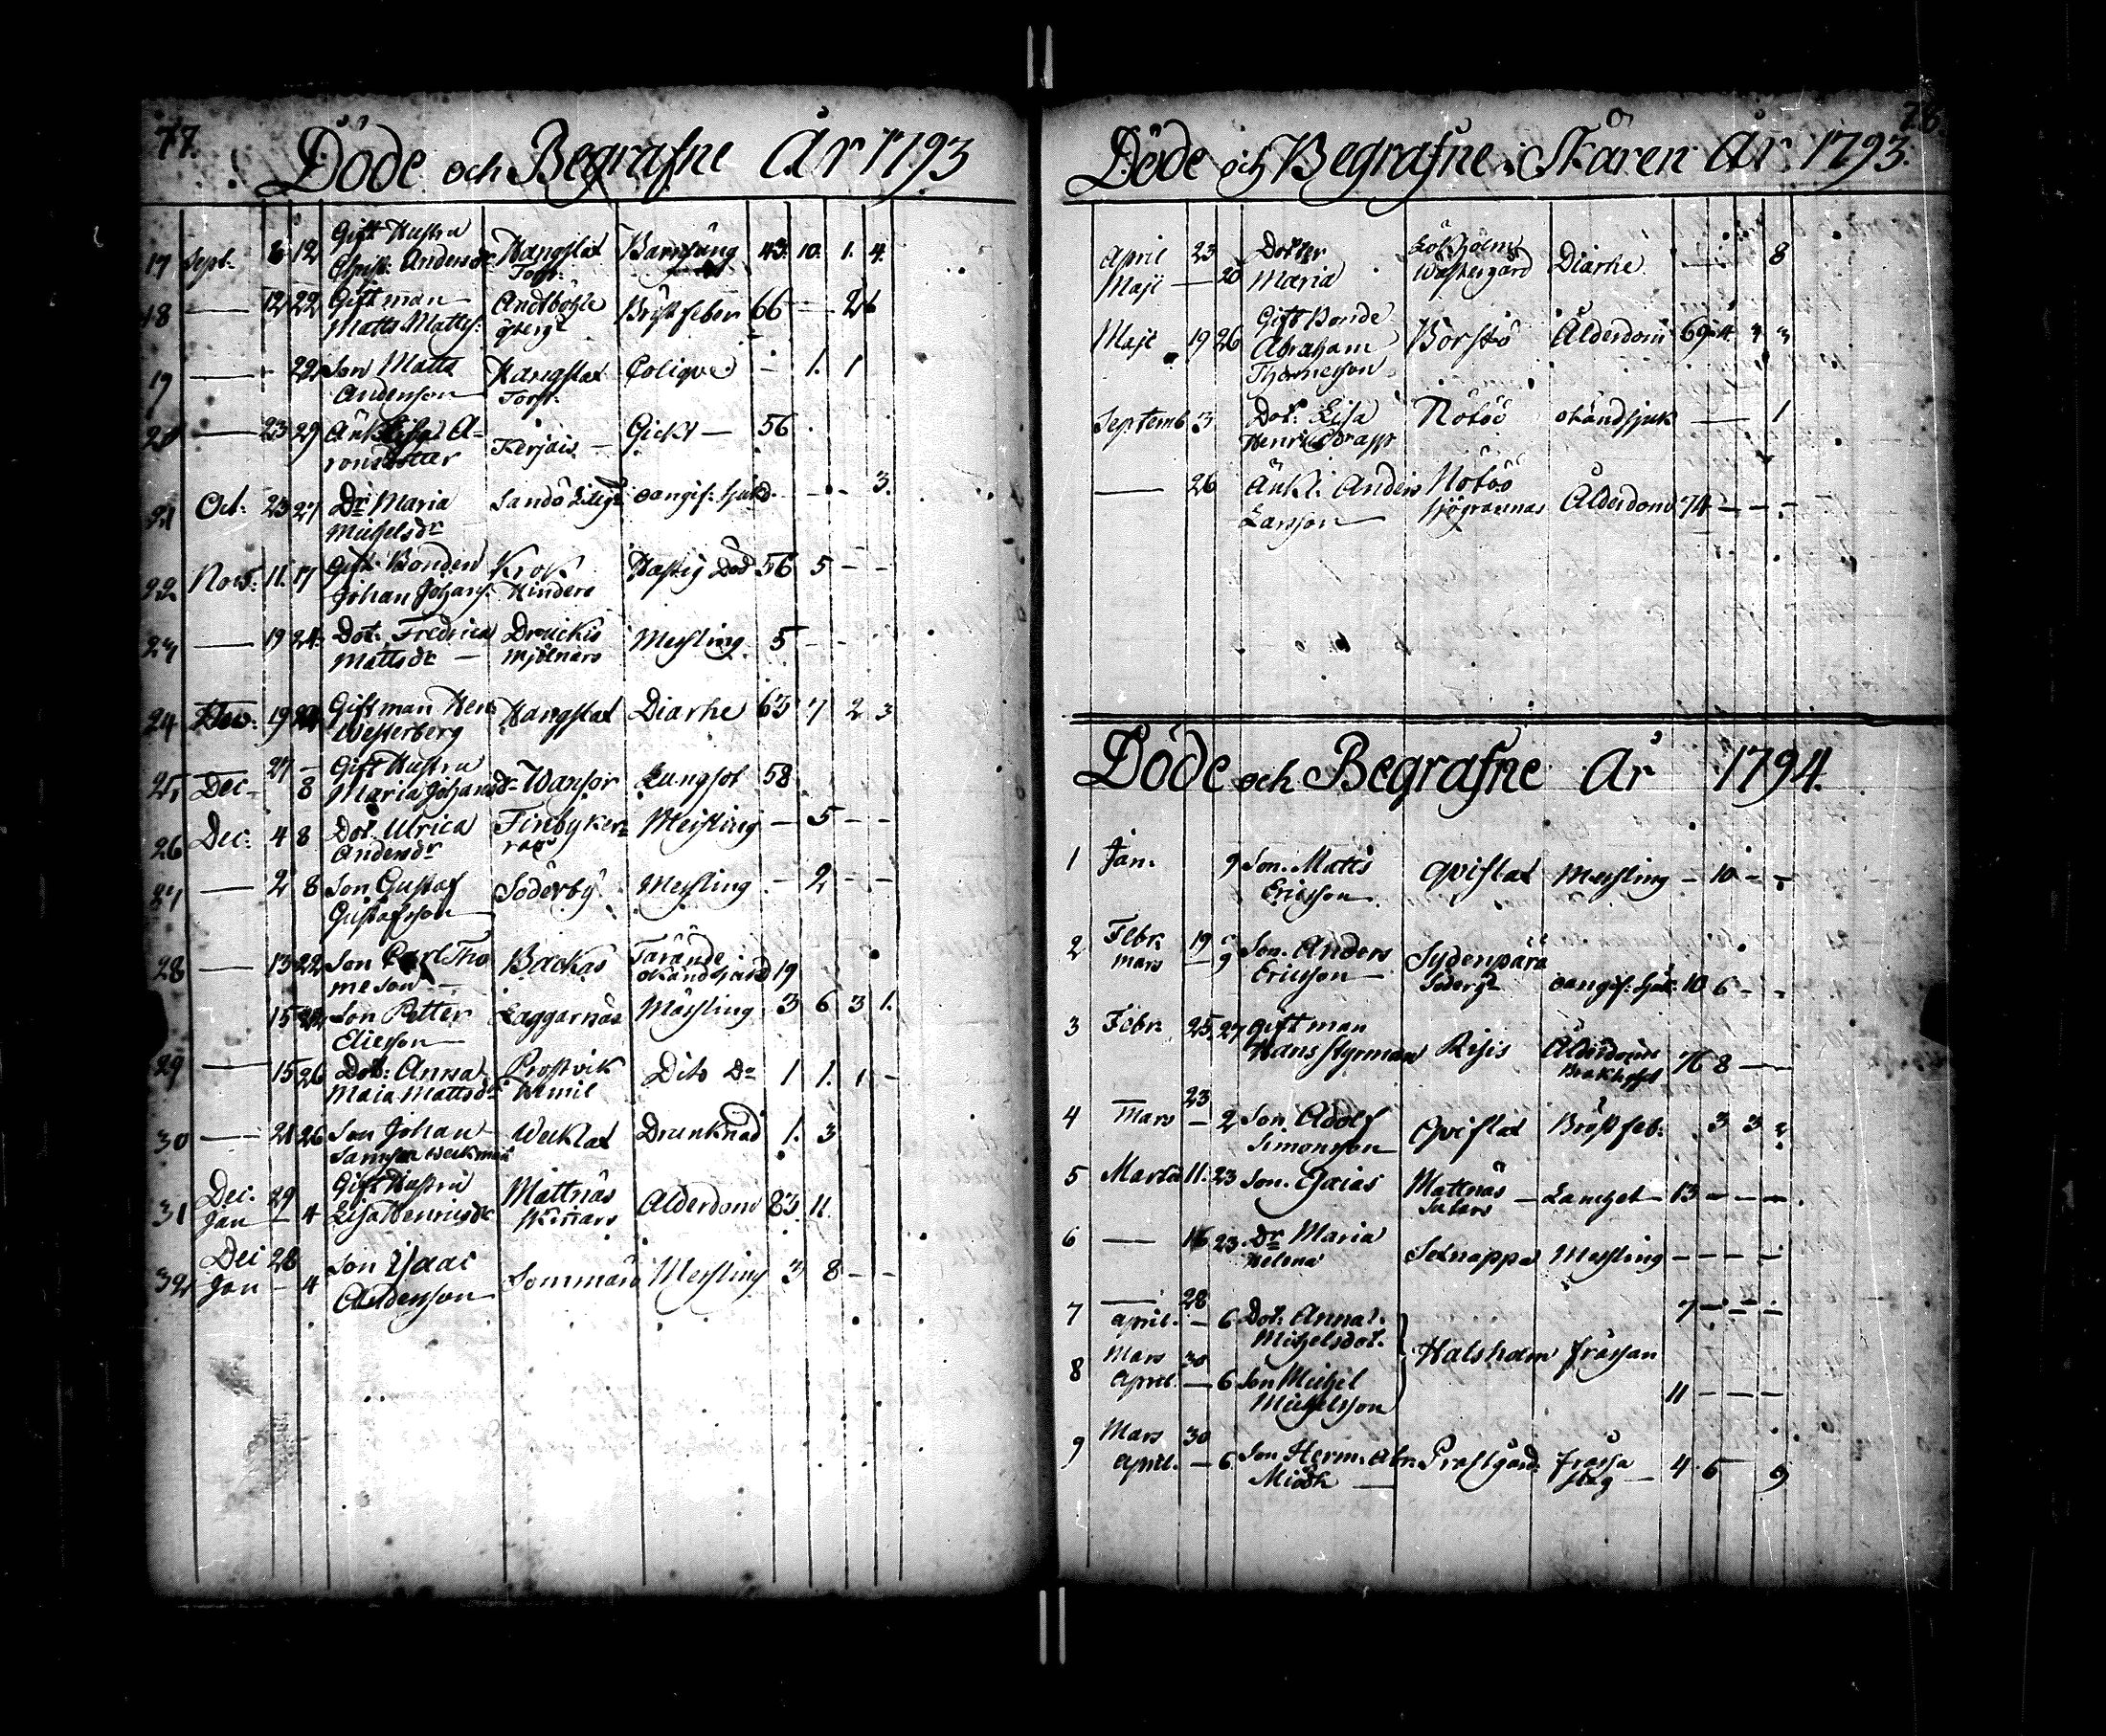 77.
Döde och Begrafne År 1793
Gift Hustru
17 Sept. 6 12 Christ: Andersdr Hangslax Barnsäng 43. 10. 1. 4.
Torp.
18 — 12 22 Gift man Andböhle Bröstfeber 66 —
Matts Matts:
19 — 22 Son Matts Hangslax Colique — 1. 1
Anderson Torp.
— 23 29 Änk Lisa A= Kerjais — Gickt — 56
ronsdotter
21 Oct. 23 27 Dr Maria Sandö oangif: sjukd. — — 3.
Michelsdr
22 Nov: 11. 17 Gift Bonden Krok Hastig Död 56 5 — —
Johan Johans: Hinders
23 — 19 24. Dot. Fredrica Druckis Messling 5 — —
Mattsdr — Mjölnars
24 19 Giftman Hen Hangslax Diarhe 63 7 2 3
Westerberg
27 — Gift Hustru
25 Dec. 8 Maria Johansdr Wansor Lungsot 58
26 Dec: 4 8 Dot. Ulrica Finby Messling — 5 — —
Andersdr
27 — 2 8 Son Gustaf Söderby Messling — 2 — —
Gustafsson
28 — 13 22 Son Carl Tho Backas Tärande 19
meson — okänd sjukd
15 22 Son Petter Laggarnäs Mässling 3 6 3 1.
Ericsson
29 — 15 26 Dot: Anna Prostvik Dito Do 1 1. 1 —
Maja Mattsdr Wimil
30 — 21 26 Son Johan Wecklax Drunknad 1. 3
31 Dec. 29 Gift Hustru Mattnäs Ålderdom 83 11.
Jan — 4 Lisa Henricsdr Skinnars
Dec 28 Son Isaac
32 Jan — 4 Anderson Sommarö Messling 3 8 — —
78.
Döde och Begrafne i Skären År 1793.
April 23 Dotter Lökholms Diarhe — — 8
Maji — 20 Maria Wästergård
Gift Bonde
Maji 19 26 Abraham Borstö Ålderdom 69
Thomesson
Septemb 3 Dot. Lisa Nötöö okänd sjuk — 1
Henricsdr
— 26 Änkl. Anders Nötöö Ålderdom 74 — — —
Larsson
Döde och Begrafne År 1794.
1 Jan. 9 Son. Matts Qvislax Messling — 10 — —
Ericsson
2 Febr. 19 Son. Anders Sydenpärä
Mars — 9 Ericsson — Söderg oangif: sjuk: 10 6 — —
3 Febr. 25. 27 Gift man Risis Ålderdom 76 8 — —
Hans Styrman
23
4 Mars — 2 Son Adolf Qvislax Bröstfeb: 3 3
Simonsson
5 Martii 11. 23 Son. Esaias Mattnäs — 13 — — —
6 — 16 23 Dr Maria Messling — — — —
Helena
28
7 April. — 6 Dot. Anna 7 — — —
Michelsdot. Halsholm frässan
Mars 30
8 April. — 6 Son Michel 11 — — —
Michelsson
Mars 30
9 April. — 6 Son Herm. Abr. Prostgård frässa 4 6 — 9